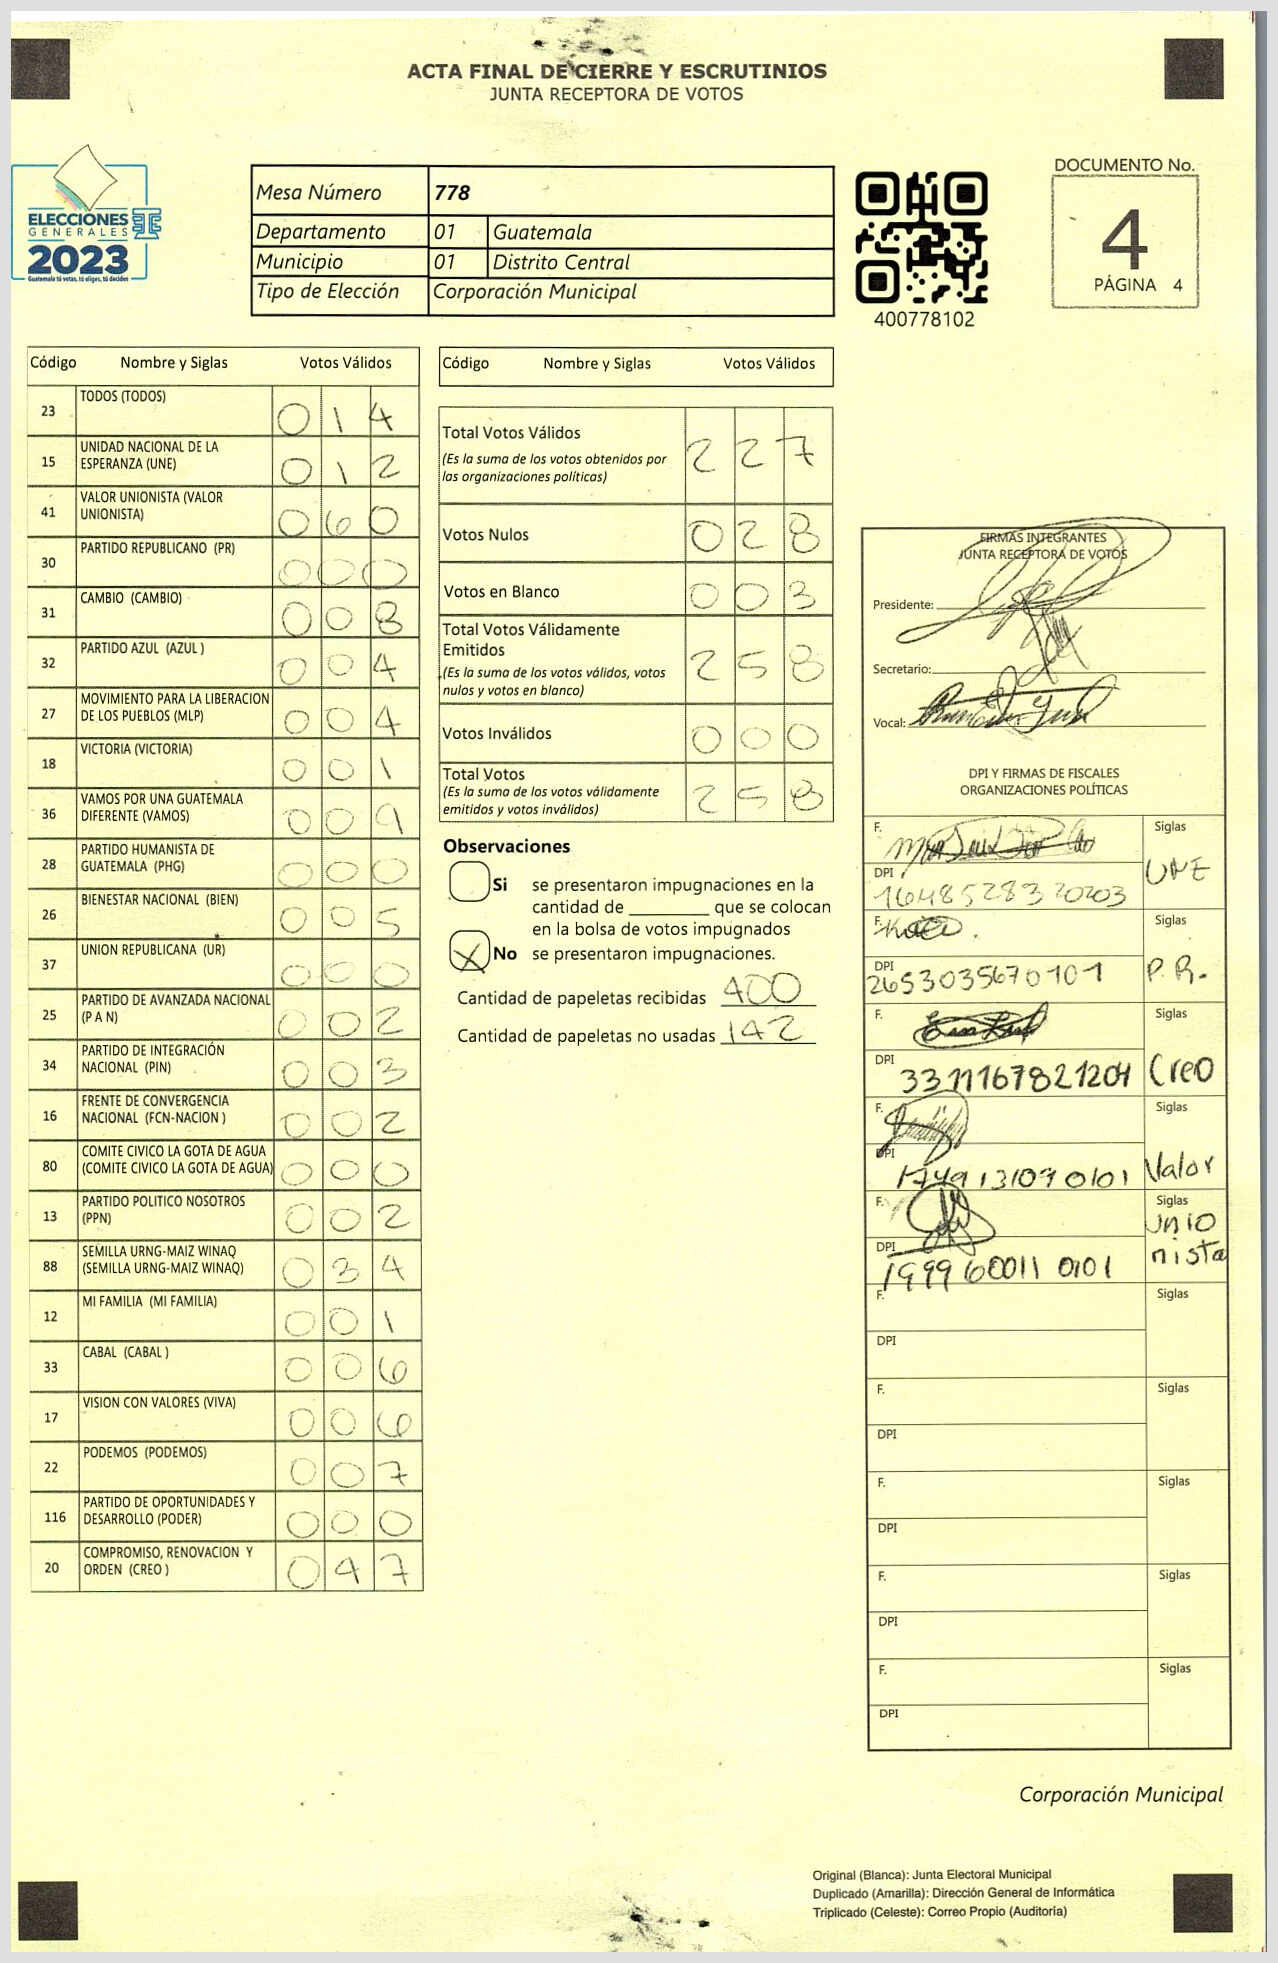 ACTA FINAL DE CIERRE Y ESCRUTINIOS
JUNTA RECEPTORA DE VOTOS
ELECCIONES
GENERALES
2023
Guatemala tú votas, tú eliges, tú decides
Mesa Número 778
Departamento 01 Guatemala
Municipio 01 Distrito Central
Tipo de Elección Corporación Municipal
400778102
DOCUMENTO No.
4
PÁGINA 4
Código Nombre y Siglas Votos Válidos
23 TODOS (TODOS) 0 1 4
15 UNIDAD NACIONAL DE LA
ESPERANZA (UNE) 0 1 2
41 VALOR UNIONISTA (VALOR
UNIONISTA) 0 6 0
30 PARTIDO REPUBLICANO (PR) 0 0 0
31 CAMBIO (CAMBIO) 0 0 8
32 PARTIDO AZUL (AZUL ) 0 0 4
27 MOVIMIENTO PARA LA LIBERACION
DE LOS PUEBLOS (MLP) 0 0 4
18 VICTORIA (VICTORIA) 0 0 1
36 VAMOS POR UNA GUATEMALA
DIFERENTE (VAMOS) 0 0 9
28 PARTIDO HUMANISTA DE
GUATEMALA (PHG) 0 0 0
26 BIENESTAR NACIONAL (BIEN) 0 0 5
37 UNION REPUBLICANA (UR) 0 0 0
25 PARTIDO DE AVANZADA NACIONAL
(P A N) 0 0 2
34 PARTIDO DE INTEGRACIÓN
NACIONAL (PIN) 0 0 3
16 FRENTE DE CONVERGENCIA
NACIONAL (FCN-NACION ) 0 0 2
80 COMITE CIVICO LA GOTA DE AGUA
(COMITE CIVICO LA GOTA DE AGUA) 0 0 0
13 PARTIDO POLITICO NOSOTROS
(PPN) 0 0 2
88 SEMILLA URNG-MAIZ WINAQ
(SEMILLA URNG-MAIZ WINAQ) 0 3 4
12 MI FAMILIA (MI FAMILIA) 0 0 1
33 CABAL (CABAL ) 0 0 6
17 VISION CON VALORES (VIVA) 0 0 6
22 PODEMOS (PODEMOS) 0 0 7
116 PARTIDO DE OPORTUNIDADES Y
DESARROLLO (PODER) 0 0 0
20 COMPROMISO, RENOVACION Y
ORDEN (CREO ) 0 4 7
Código Nombre y Siglas Votos Válidos
Total Votos Válidos 2 2 7
(Es la suma de los votos obtenidos por
las organizaciones políticas)
Votos Nulos 0 2 8
Votos en Blanco 0 0 3
Total Votos Válidamente
Emitidos 2 5 8
(Es la suma de los votos válidos, votos
nulos y votos en blanco)
Votos Inválidos 0 0 0
Total Votos 2 5 8
(Es la suma de los votos válidamente
emitidos y votos inválidos)
Observaciones
Si se presentaron impugnaciones en la
cantidad de ________ que se colocan
en la bolsa de votos impugnados
X No se presentaron impugnaciones.
Cantidad de papeletas recibidas 400
Cantidad de papeletas no usadas 142
FIRMAS INTEGRANTES
JUNTA RECEPTORA DE VOTOS
Presidente:
Secretario:
Vocal:
DPI Y FIRMAS DE FISCALES
ORGANIZACIONES POLÍTICAS
F. Siglas
UNE
DPI
1648528320203
F. Siglas
DPI P.R.
2653035670101
F. Siglas
DPI
3311167821204 Creo
F. Siglas
DPI
1749131070101 Valor
F. Siglas
Unio
DPI nista
1999600110101
F. Siglas
DPI
F. Siglas
DPI
F. Siglas
DPI
F. Siglas
DPI
F. Siglas
DPI
Corporación Municipal
Original (Blanca): Junta Electoral Municipal
Duplicado (Amarilla): Dirección General de Informática
Triplicado (Celeste): Correo Propio (Auditoría)